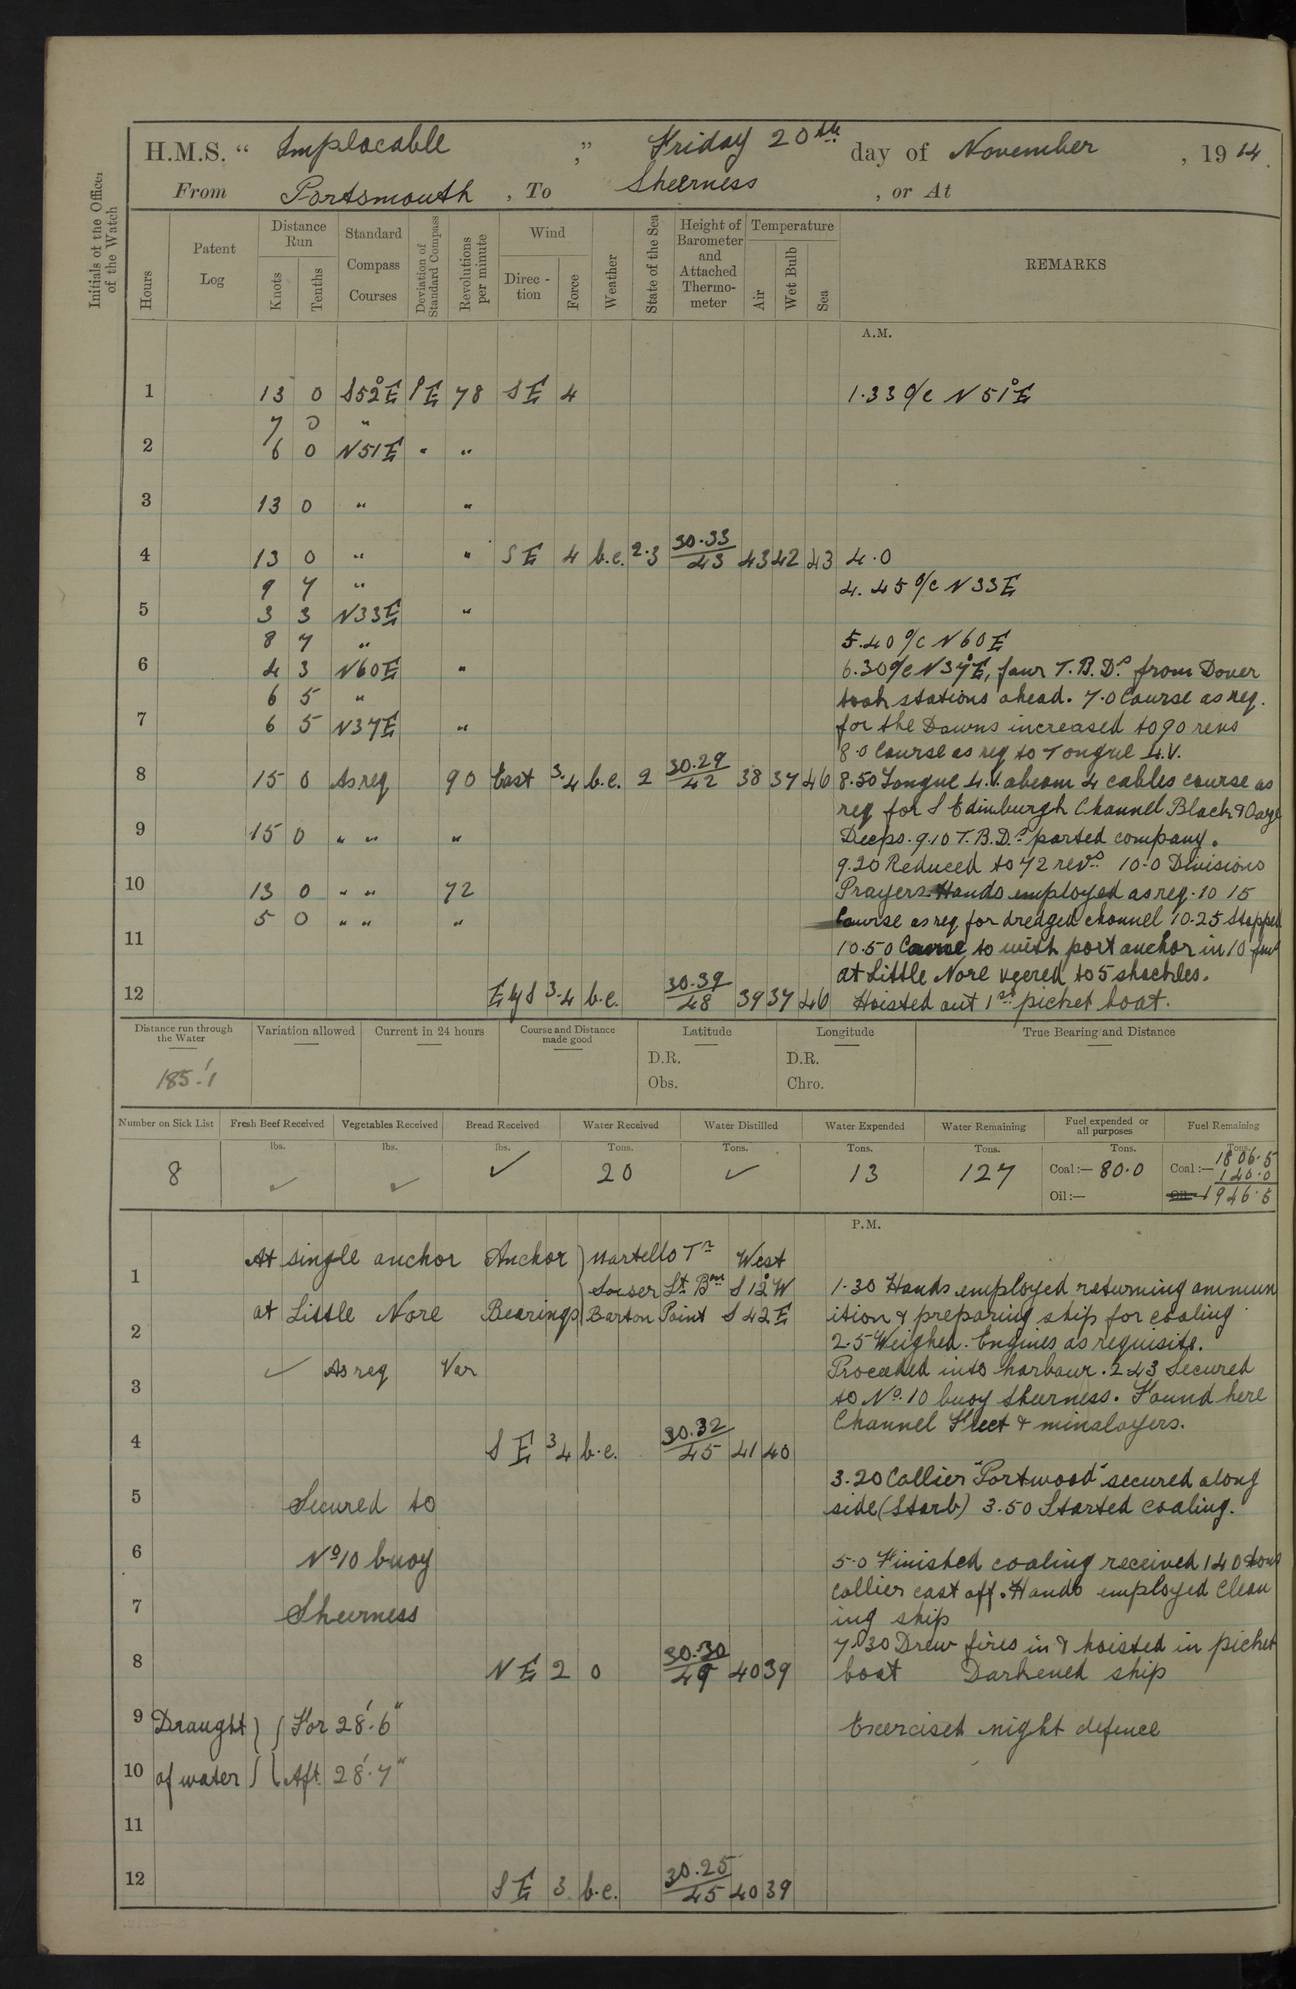 H.M.S. “ Implacable ,” Friday 20th day of November , 1914.
From Portsmouth , To Sheerness , or At
Initials of the Officer of the Watch
Hours
Patent Log
Distance Run
Knots
Tenths
Standard Compass Courses
Deviation of Standard Compass
Revolutions per minute
Wind
Direc-tion
Force
Weather
State of the Sea
Height of Barometer and Attached Thermo-meter
Temperature
Air
Wet Bulb
Sea
REMARKS
A.M.
1 13 0 S52°E 1°E 78 SE 4 1.33 a/c N 51°E
7 0 "
2 6 0 N51E " "
3 13 0 " "
4 13 0 " " SE 4 b.c. 2.3 30.33/43 43 42 43 4.0
9 7 " 4.45 a/c N33E
5 3 3 N33E "
8 7 " 5.40 a/c N60E
6 4 3 N60E " 6.30 a/c N37°E, four T.B.Ds from Dover
6 5 " took stations ahead. 7.0 Course as req.
7 6 5 N37E " for the Downs increased to 90 revs
8.0 Course as req to Tongue L.V.
8 15 0 As req 90 East 3.4 b.c. 2 30.29/42 38 37 46 8.50 Tongue L.V. abeam 4 cables course as
req for S Edinburgh Channel Black & Oaze
9 15 0 " " " Deeps. 9.10 T.B.Ds parted company.
9.20 Reduced to 72 revs. 10.0 Divisions
10 13 0 " " 72 Prayers. Hands employed as req. 10 15
5 0 " " " Course as req for dredged channel 10.25 Stopped
11 10.50 Came to with port anchor in 10 fms
at Little Nore veered to 5 shackles.
12 E by S 3.4 b.c. 30.39/48 39 37 46 Hoisted out 1st picket boat.
Distance run through the Water
Variation allowed
Current in 24 hours
Course and Distance made good
Latitude
Longitude
True Bearing and Distance
185.'1
D.R.
Obs.
D.R.
Chro.
Number on Sick List
Fresh Beef Received
Vegetables Received
Bread Received
Water Received
Water Distilled
Water Expended
Water Remaining
Fuel expended or all purposes
Fuel Remaining
lbs. lbs. lbs. Tons. Tons. Tons. Tons. Tons. Tons.
8 ✓ ✓ ✓ 20 ✓ 13 127 Coal:— 80.0 Coal:— 1806.5
140.0
Oil:— Oil:— 1946.5
P.M.
At single anchor Anchor Martello Tr West
1 Lt Bn S 12°W 1.30 Hands employed returning ammun
at Little Nore Bearings Barton Point S 42 E ition & preparing ship for coaling
2 2.5 Weighed. Engines as requisite.
✓ As req Var Proceeded into harbour. 2.43 Secured
3 to No. 10 buoy Sheerness. Found here
Channel Fleet & minelayers.
4 SE 3 4 b.c. 30.32/45 41 40
3.20 Collier "Portwood" secured along
5 Secured to side (Starb) 3.50 Started coaling.
6 No 10 buoy 5.0 Finished coaling received 140 tons
collier cast off. Hands employed clean
7 Sheerness ing ship
7.30 Drew fires in & hoisted in picket
8 NE 2 0 30.30/49 40 39 boat Darkened ship
9 Draught For 28'.6" Exercised night defence
10 of water Aft 28'.7"
11
12 SE 3 b.c. 30.25/45 40 39